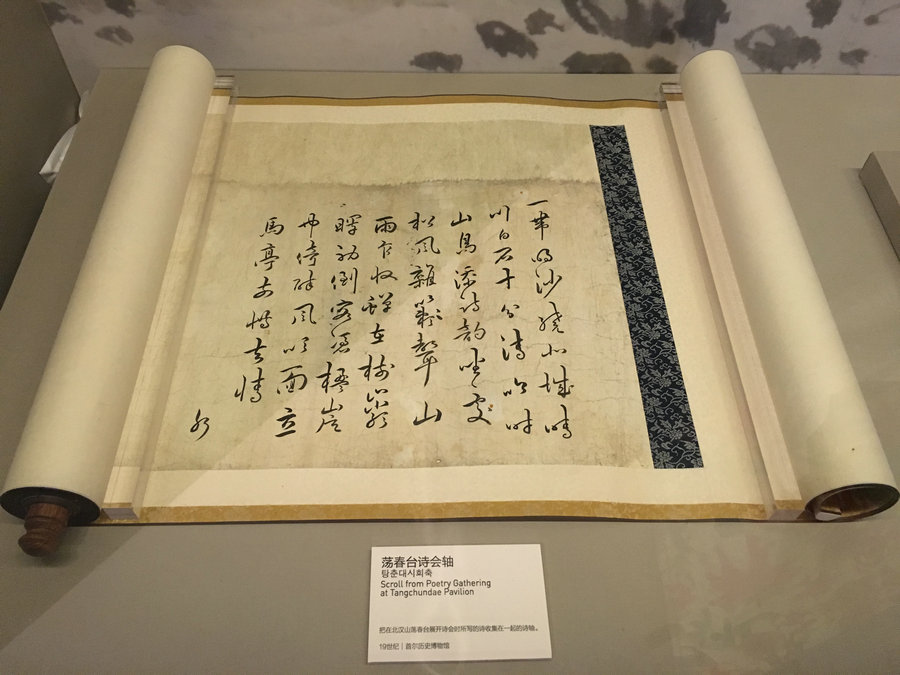 一帶明沙繞北城晴
川白石十分清吟時
山鳥添詩韵坐處
松風雜聲山
雨乍收蟬在樹
暉初倒客楹
倚醉風面立
馬亭前惜去情
荡春台诗会轴
탕춘대시회축
Scroll from Poetry Gathering
at Tangchundae Pavilion
把在北汉山荡春台展开诗会时所写的诗收集在一起的诗轴。
19世纪｜首尔历史博物馆